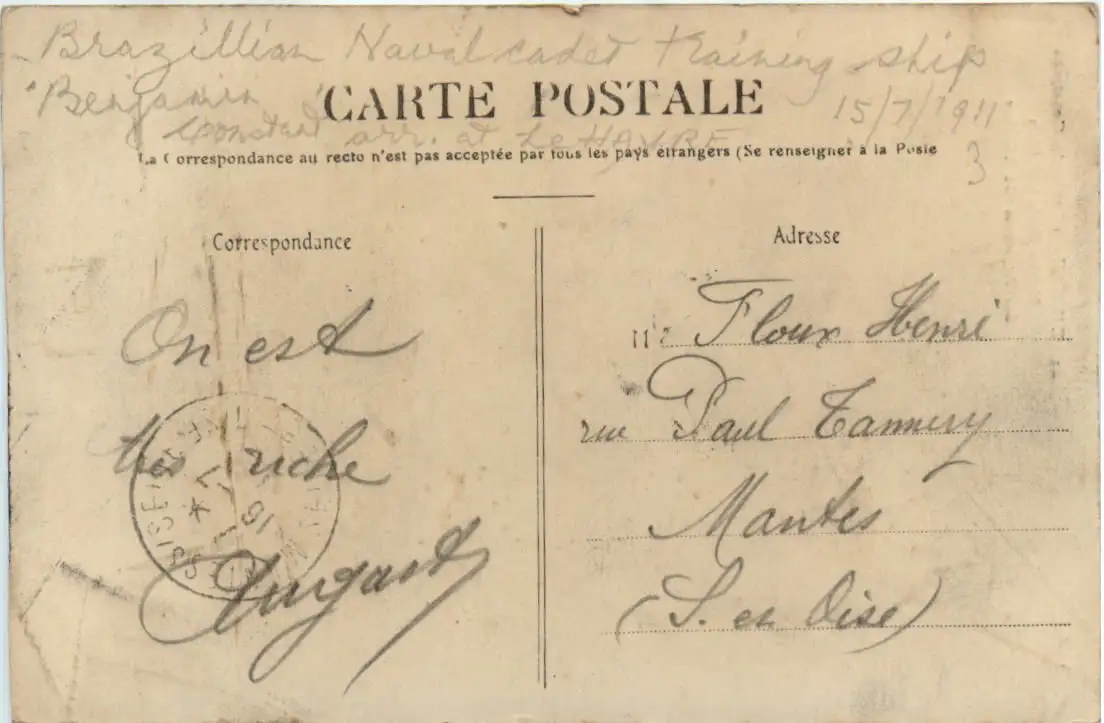 Brazillian Naval cadet training ship
"Benjamin
CARTE POSTALE
15/7/1911
Constant arr. at Le HAVRE
La Correspondance au recto n'est pas acceptée par tous les pays étrangers (Se renseigner à la Poste
3
Correspondance
Adresse
On est
très riche
Mr Floux Henri
rue Paul Tannery
Mantes
(S. en Oise)
16
7